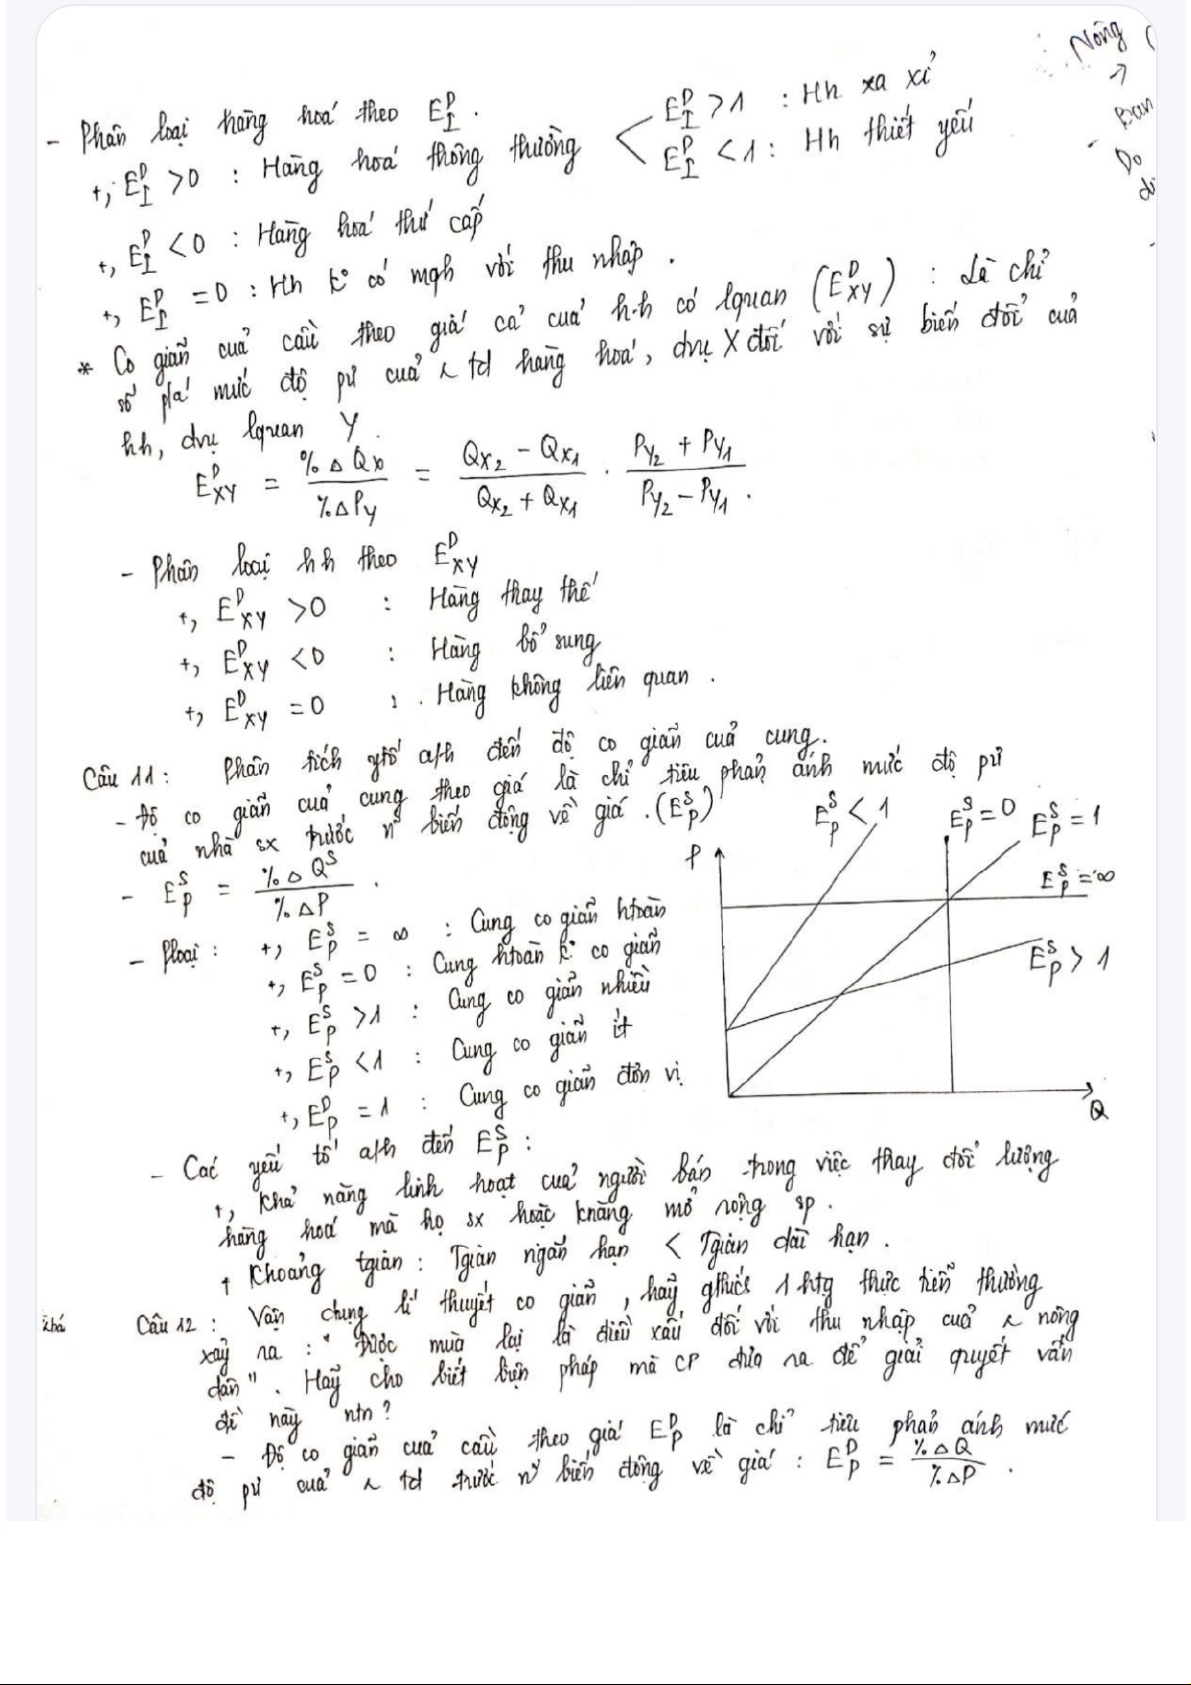 Nông (
→
Ban
- Do
dù
- Phân loại hàng hoá theo E^D_I.
+, E^D_I >0 : Hàng hoá thông thường < E^D_I >1 : Hh xa xỉ
E^D_I <1 : Hh thiết yếu
+, E^D_I <0 : Hàng hoá thứ cấp
+, E^D_I =0 : Hh k° có mqh với thu nhập.
* Co giãn của cầu theo giá cả của h.h có lquan (E^D_XY) : Là chỉ
số p/a' mức độ pứ của td hàng hoá, dvụ X đối với sự biến đổi của
hh, dvụ lquan Y.
E^D_XY = %ΔQx / %ΔPy = (Qx2 - Qx1) / (Qx2 + Qx1) . (Py2 + Py1) / (Py2 - Py1).
- Phân loại hh theo E^D_XY
+, E^D_XY >0 : Hàng thay thế
+, E^D_XY <0 : Hàng bổ sung
+, E^D_XY =0 : Hàng không liên quan.
Câu 11: Phân tích ytố a/h đến độ co giãn của cung.
- Độ co giãn của cung theo giá là chỉ tiêu phản ánh mức độ pứ
của nhà sx trước n~ biến động về giá. (E^S_P)
- E^S_P = %ΔQ^S / %ΔP.
- Ploại : +, E^S_P = ∞ : Cung co giãn htoàn
+, E^S_P =0 : Cung htoàn k° co giãn
+, E^S_P >1 : Cung co giãn nhiều
+, E^S_P <1 : Cung co giãn ít
+, E^D_P =1 : Cung co giãn đơn vị
P
E^S_P < 1
E^S_P =0
E^S_P =1
E^S_P =∞
E^S_P > 1
Q
- Các yếu tố a/h đến E^S_P :
+, Khả năng linh hoạt của người bán trong việc thay đổi lượng
hàng hoá mà họ sx hoặc knăng mở rộng sp.
+ Khoảng tgian : Tgian ngắn hạn < Tgian dài hạn.
khá
Câu 12 : Vận dụng lí thuyết co giãn, hãy gthích 1 htg thực tiễn thường
xảy ra : "Được mùa lại là điều xấu đối với thu nhập của nông
dân". Hãy cho biết biện pháp mà CP đưa ra để giải quyết vấn
đề này ntn?
- Độ co giãn của cầu theo giá E^D_P là chỉ tiêu phản ánh mức
độ pứ của td trước n~ biến động về giá : E^D_P = %ΔQ / %ΔP.